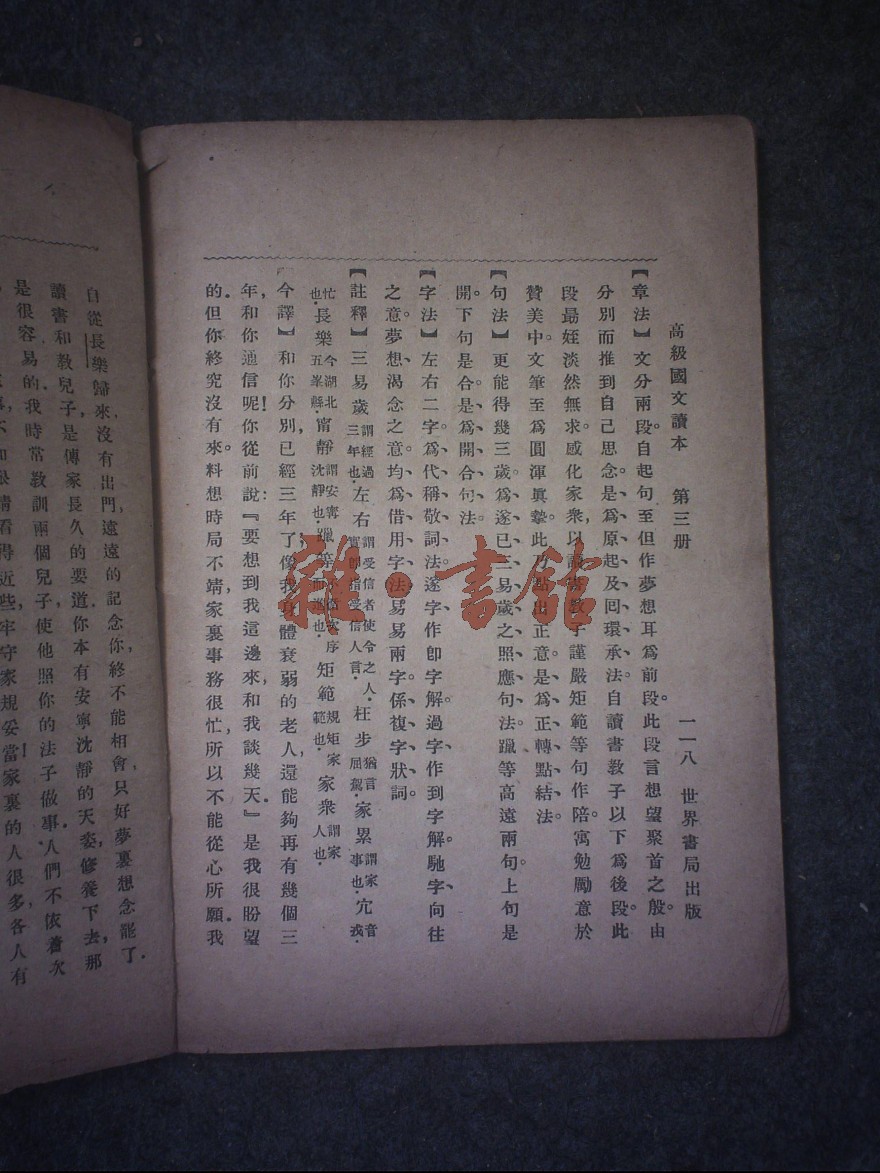 高級國文讀本　第三册　一一八　世界書局出版
【章法】文分兩段。自起句至但作夢想耳爲前段。此段言想望聚首之殷。由
分別而推到自己思念。是爲原起及回環承法。自讀書教子以下爲後段。此
段最姪淡然無求。感化家衆。以讀書教子謹嚴矩範等句作陪。寓勉勵意於
贊美中。文筆至爲圓渾眞摯。此乃點出正意。是爲正轉點結法。
【句法】更能得幾三歲。爲遂已三易歲之照應句法。躐等高遠兩句。上句是
開。下句是合。是爲開合句法。
【字法】左右二字。爲代稱敬詞法。遂字作卽字解。過字作到字解。馳字向往
之意。夢想、渴念之意。均爲借用字法。易易兩字。係複字狀詞。
【註釋】三易歲謂經過三年也．左右謂受信者使令之人．實卽指受信人言．枉步猶言屈駕．家累謂家事也．宂音戎．
忙也．長樂今湖北五峯縣．甯靜謂安甯沈靜也．躐等次序而進也．矩範規矩家範也．家衆謂家人也．
【今譯】和你分別，已經三年了；像我身體衰弱的老人，還能夠再有幾個三
年，和你通信呢！你從前說：『要想到我這邊來，和我談幾天。』是我很盼望
的。但你終究沒有來。料想時局不靖，家裏事務很忙，所以不能從心所願。我
自從長樂歸來，沒有出門，遠遠的記念你，終不能相會，只好夢裏想念罷了．
讀書和教兒子，是傳家長久的要道。你本有安寧沈靜的天姿，修養下去，那
是很容易的。我時常教訓兩個兒子，使他照你的法子做事。人們不依着次
看得近些，牢守家規妥當！家裏的人很多，各人有